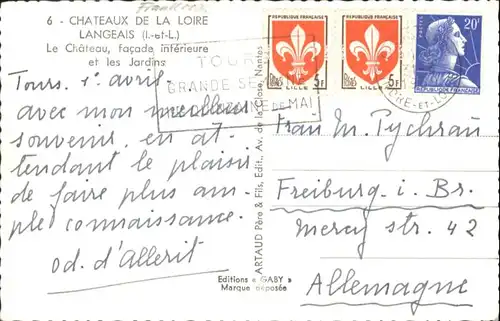 Frankreich
6 - CHATEAUX DE LA LOIRE
LANGEAIS (I.-et-L.)
Le Château, façade inférieure
et les Jardins
Tours, 1° avril.
avec mon meilleur
souvenir, en at-
tendant le plaisir
de faire plus am-
ple connaissance.
od. d'Allerit
Editions « GABY »
Marque déposée
ARTAUD Père & Fils, Edit., Av. de la Close, Nantes
TOURS
GRANDE SE
DE MAI
REPUBLIQUE FRANÇAISE
5F
LILLE
REPUBLIQUE FRANÇAISE
5F
LILLE
20F
RE-ET-LO
Frau M. Pychrau
Freiburg i. Br.
Mercy str. 42
Allemagne